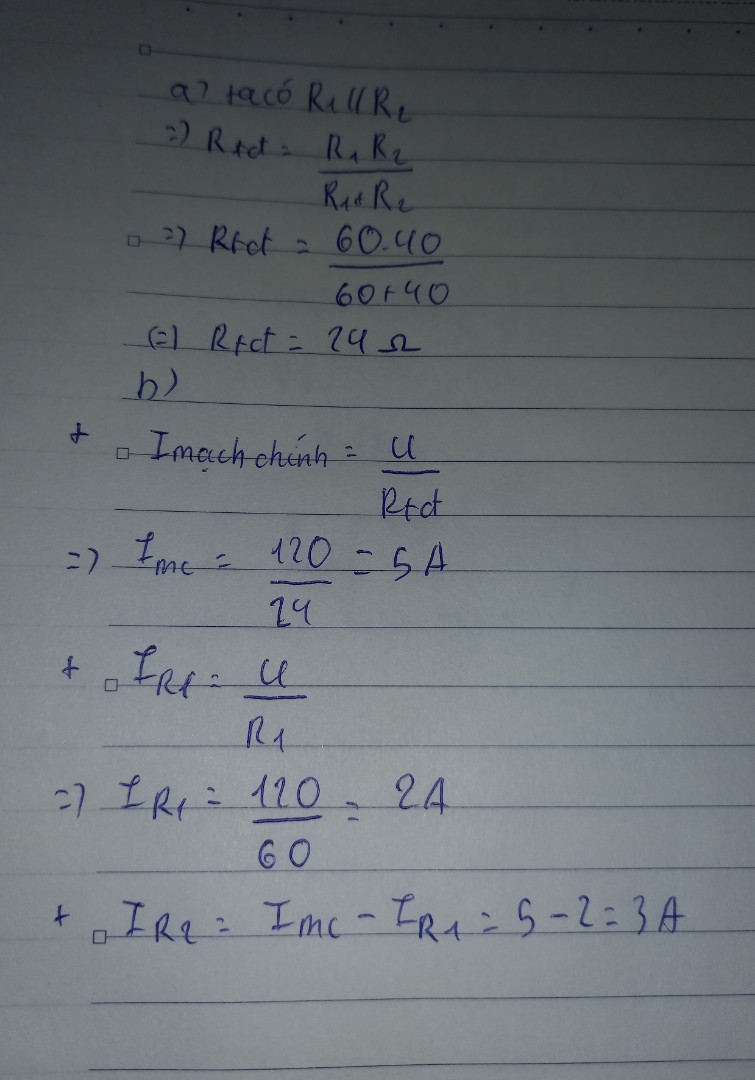 a) ta có R1 // R2
=) Rtđ = R1 R2 / R1+R2
=) Rtđ = 60.40 / 60+40
(=) Rtđ = 24 Ω
b)
+ I mạch chính = U / Rtđ
=) Imc = 120 / 24 = 5 A
+ IR1 = U / R1
=) IR1 = 120 / 60 = 2A
+ IR2 = Imc - IR1 = 5 - 2 = 3A